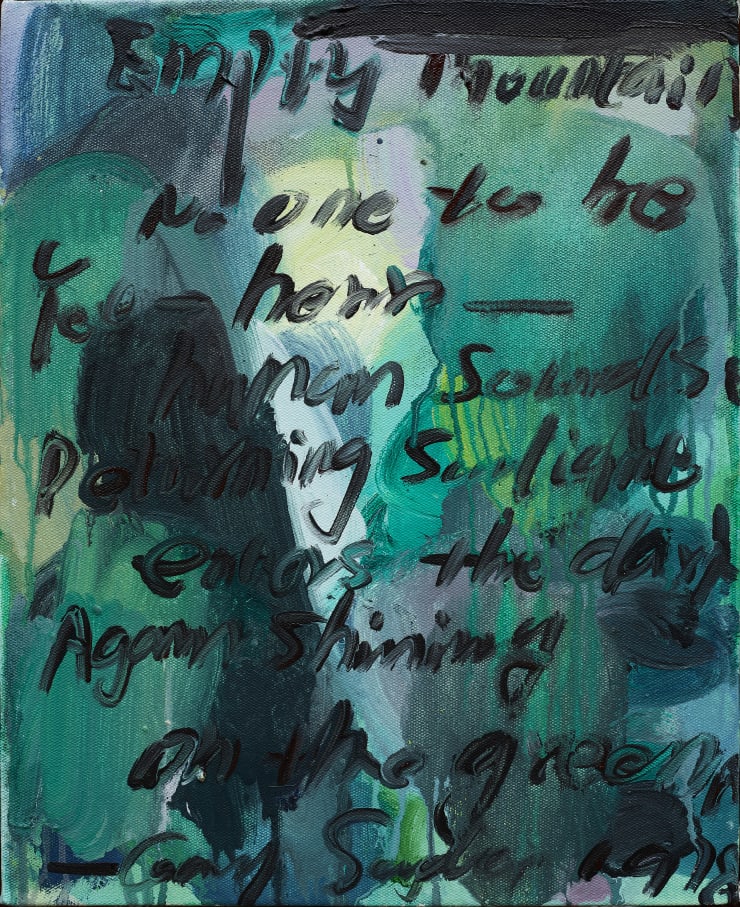 Empty Mountain
No one to be
Yee - hear —
human Sounds
Returning Sunlight
enters the dark
Again Shining
on the green
— Gary Snyder